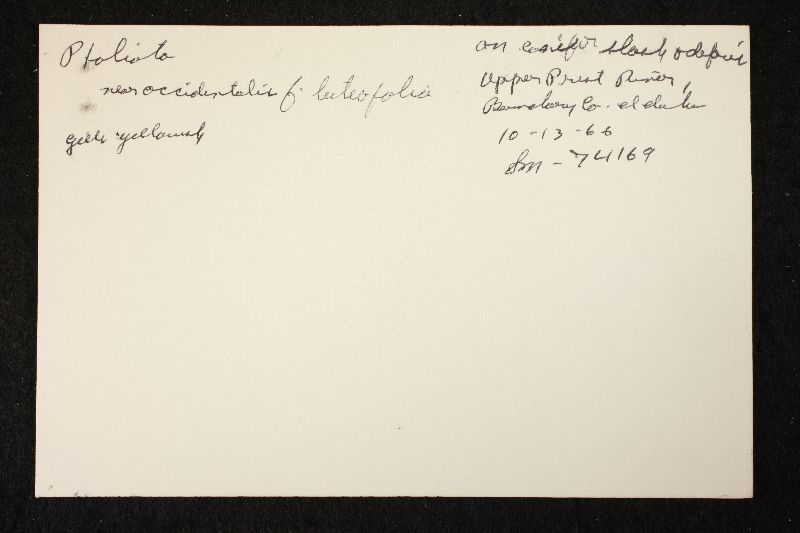 Pholiota
near occidentalis f. luteofolia
gills yellowish
on conifer slash & debris
Upper Priest River,
Boundary Co. Idaho
10-13-66
Sm-74169